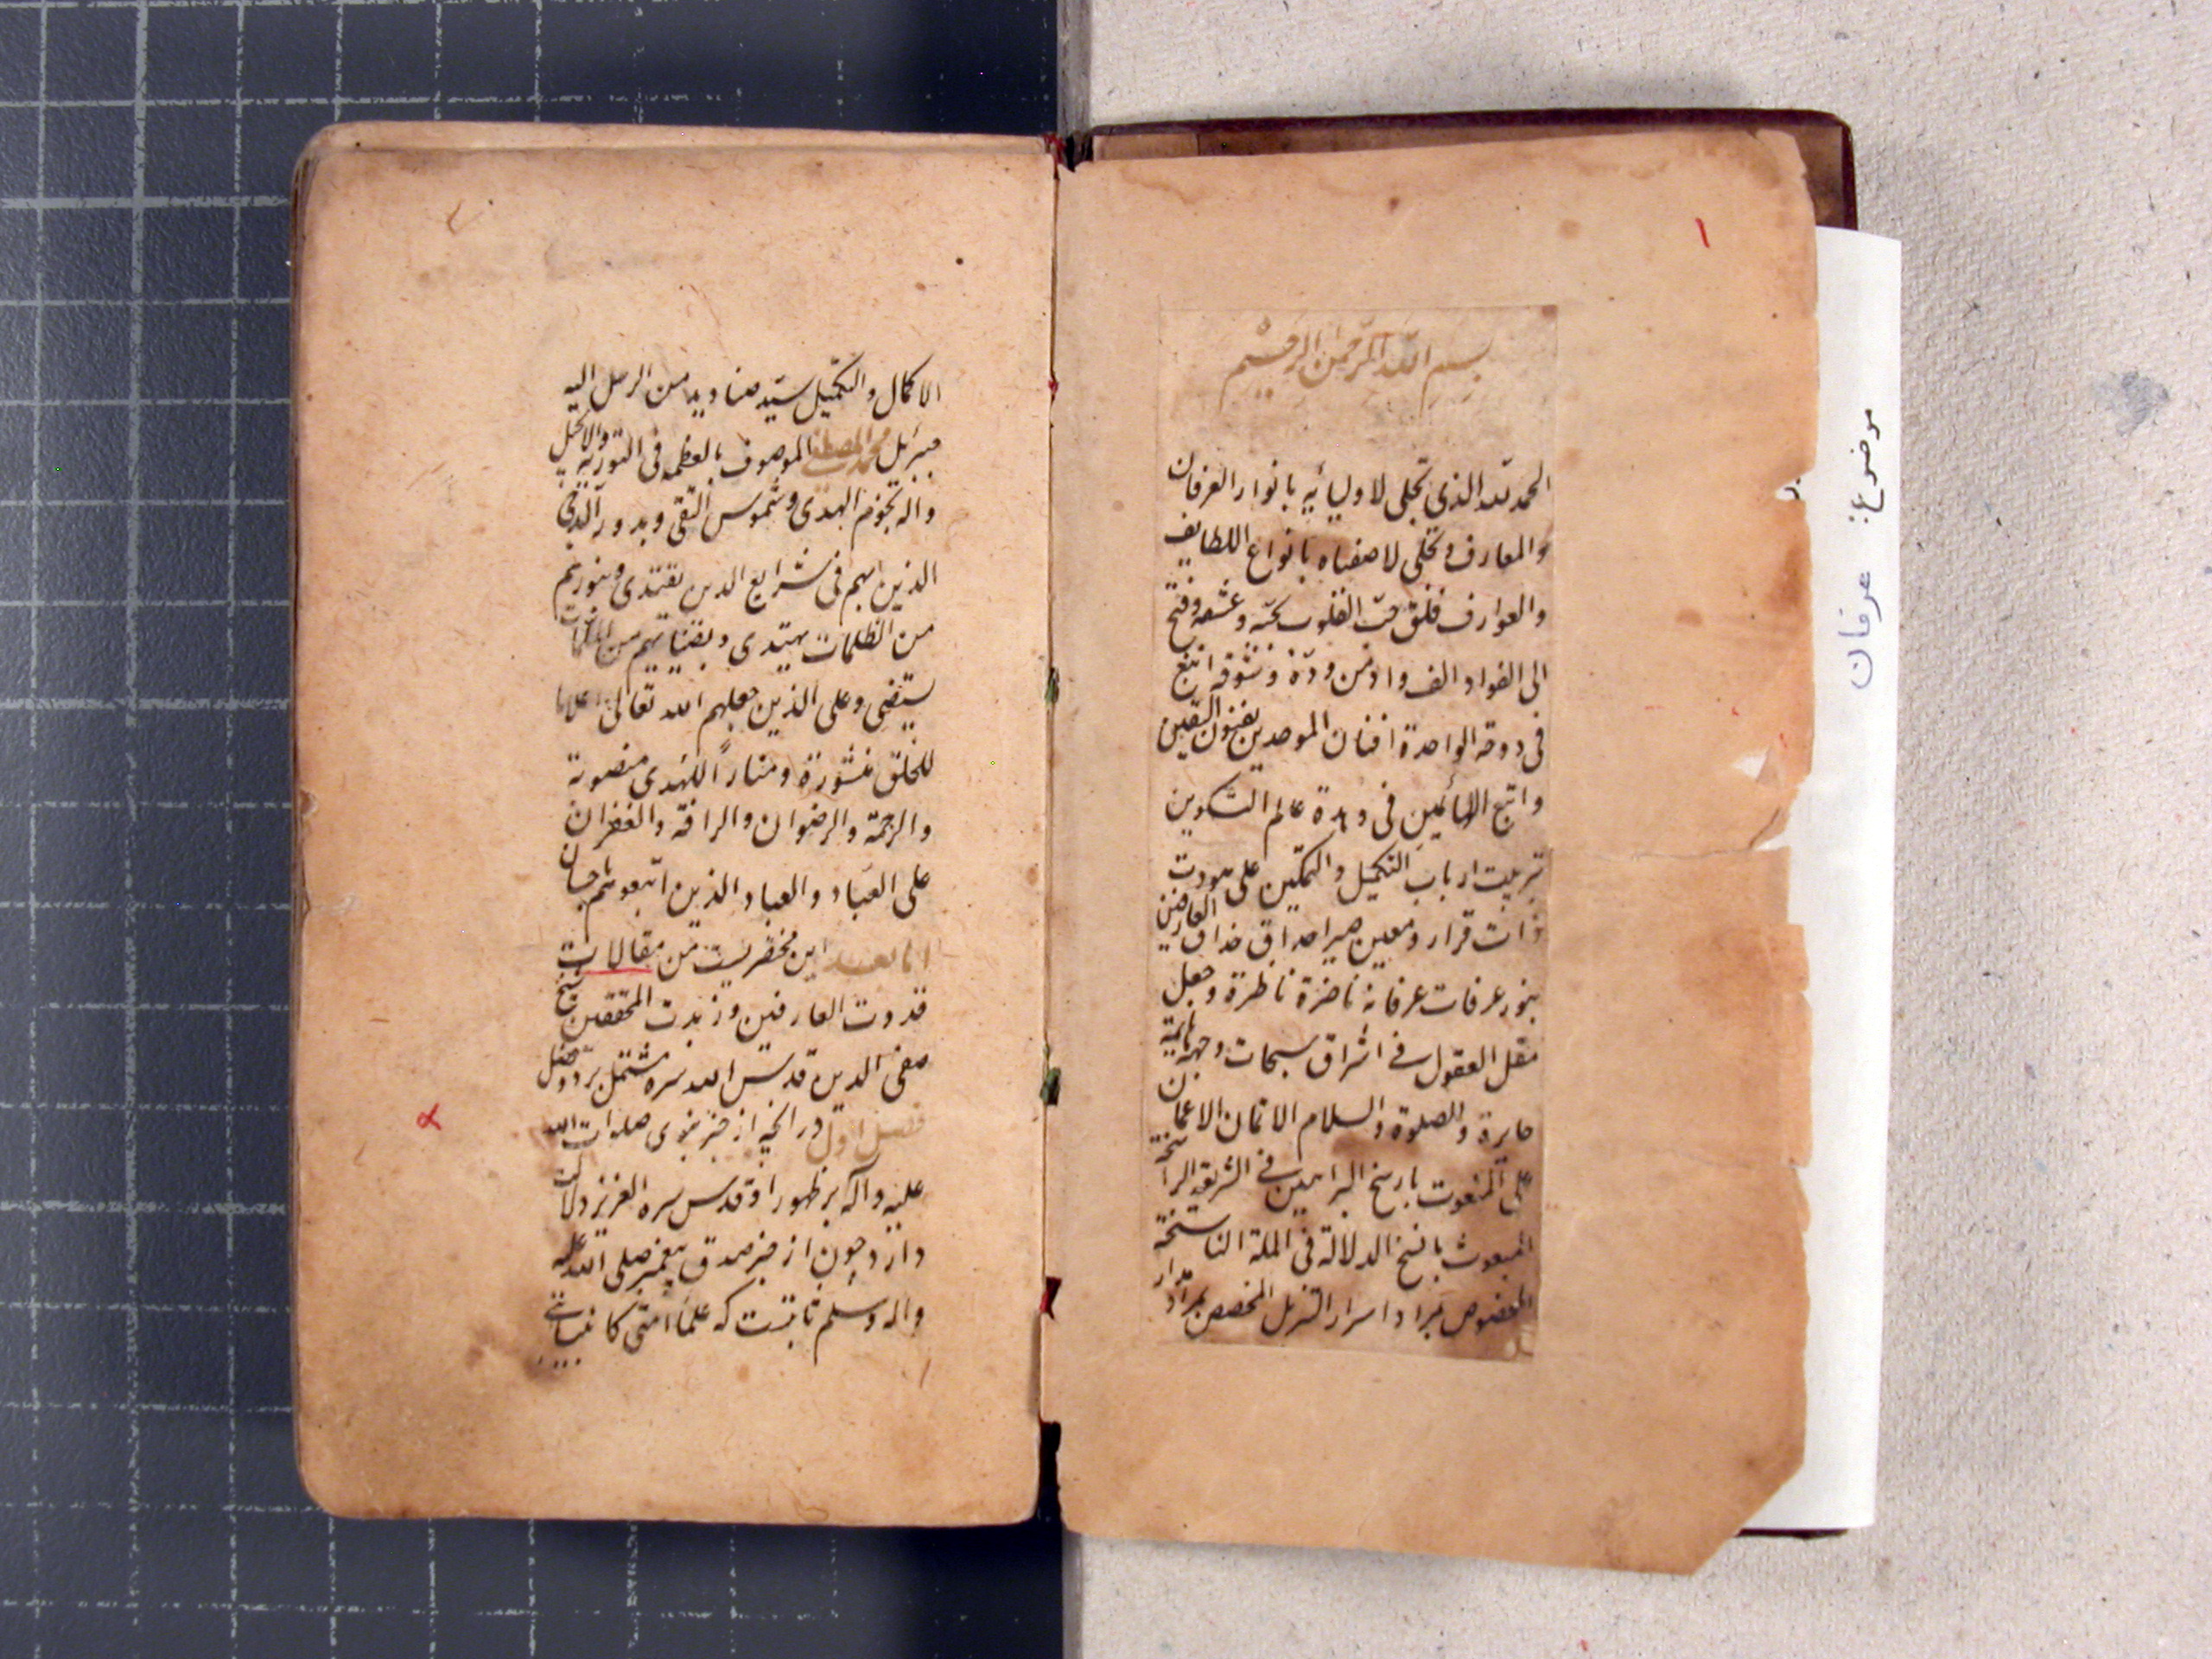 ۱
بسم الله الرحمن الرحیم
الحمد لله الذی تجلی لاولیائه بانوار العرفان
والمعارف و تجلی لاصفیاه بانواع اللطایف
والعوارف فلق حب القلوب بحبه وعشقه وفتح
الی الفواد الف واد من ودّه وشوقه اینع
فی دوحه الواحدة افنان الموحدین بفنون الیقین
عالم التکوین
تربیت ارباب التکمیل والتمکین علی
ذات قرار ومعین صیر احداق حذاق العارفین
بنور عرفات عرفانه ناضرة ناظرة وجعل
مقل العقول فی اشراق سبحات وجهه
حایرة والصلوة والسلام الاتمان الاعمان
علی المنعوت بارسخ البراهین فی الشریعة الراسخة
المبعوث بانسخ الدلالة فی الملة الناسخة
المخصوص اسرار التنزیل المخصص
الاکمال والتکمیل سید صنادید من الرسل الیه
جبرئیل محمد المصطفی الموصوف بالعظمه فی التوریة والانجیل
واله نجوم الهدی وشموس التقی وبدور الدجی
الذین بهم فی شرایع الدین یقتدی وبنورهم
من الظلمات یهتدی وبضیائهم من
یستضی وعلی الذین جعلهم الله تعالی اعلاما
للخلق منشورة ومناراً للهدی منصوبة
والرحمة والرضوان والرافه والغفران
علی العباد والعباد الذین اتبعوهم
اما بعد این مختصریست من مقالات
قدوت العارفین وزبدت المحققین شیخ
صفی الدین قدس الله سره مشتمل بر دو فصل
فصل اول در انچه از خبر نبوی صلوات الله
علیه وآله بر ظهور او قدس سره العزیز دلالت
دارد چون از خبر صدق پیغمبر صلی الله علیه
واله وسلم ثابتست که علما امتی کانبیائی
موضوع: عرفان